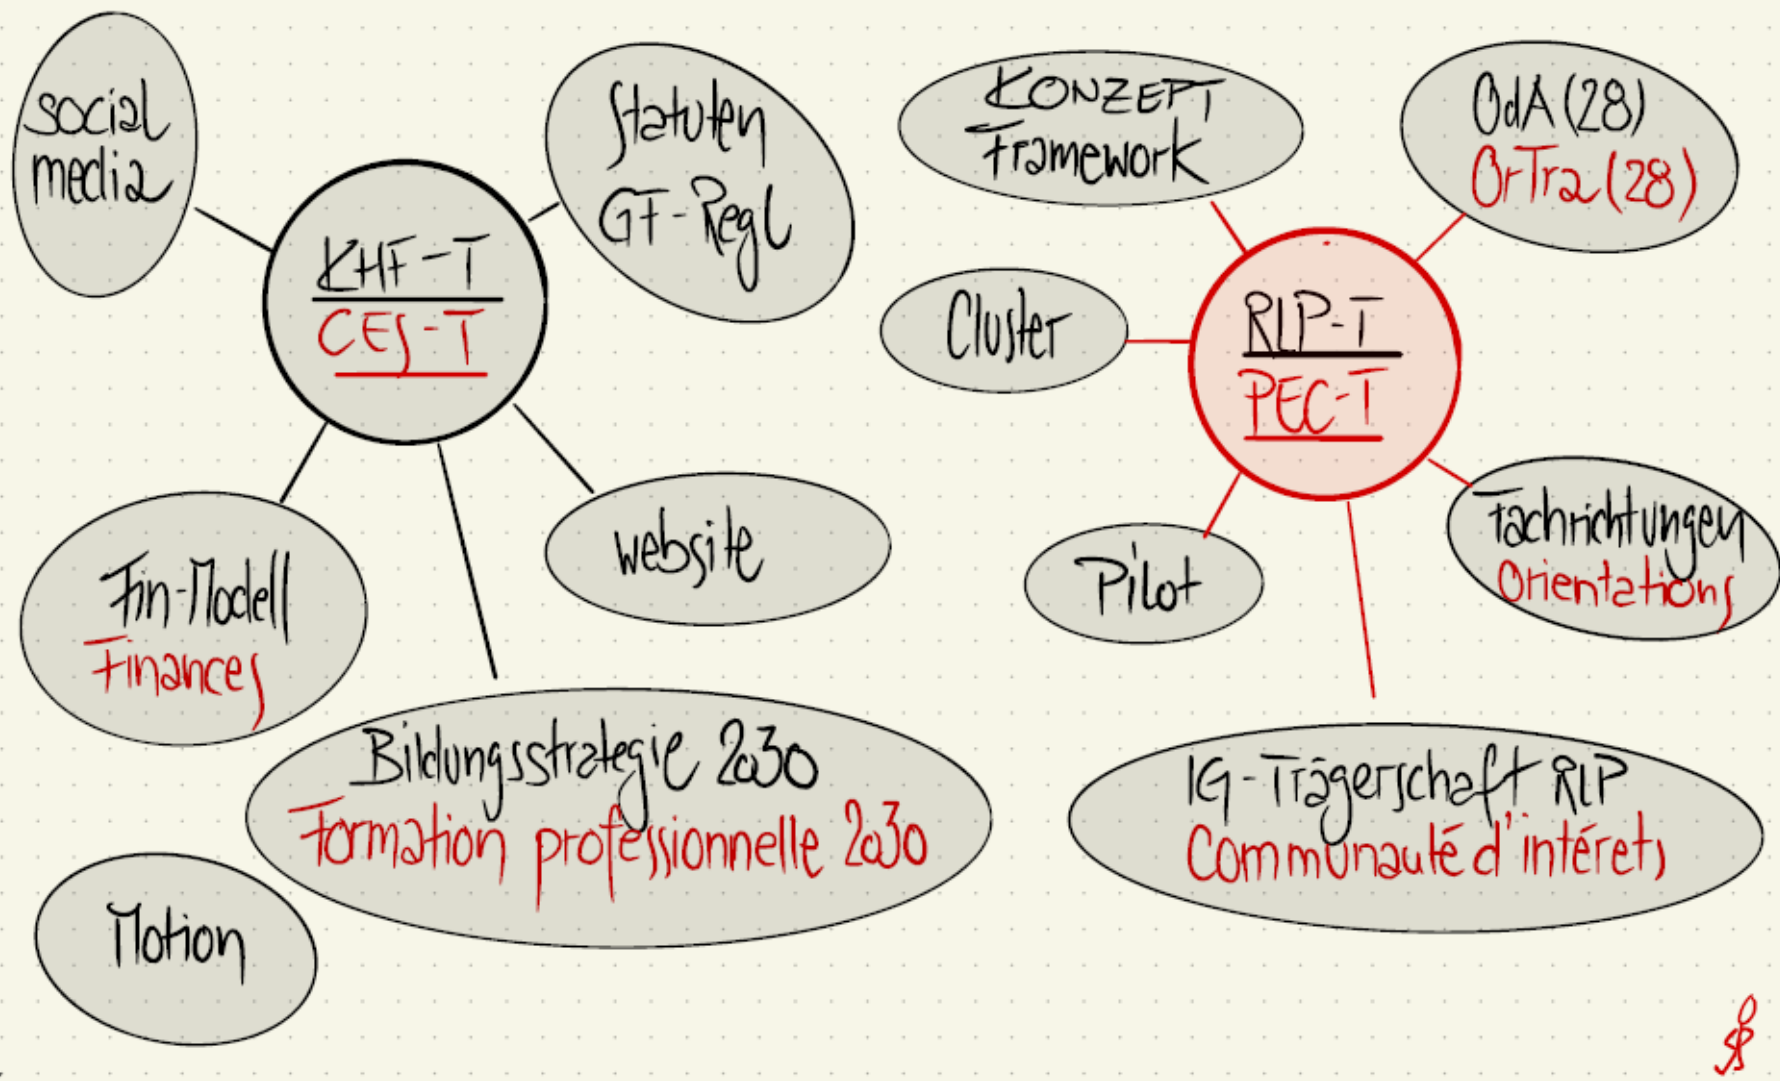 social
media
Statuten
GF-Regl
KHF-T
CES-T
Fin-Modell
Finances
website
Bildungsstrategie 2030
Formation professionnelle 2030
Motion
KONZEPT
Framework
OdA (28)
OrTra (28)
Cluster
RLP-T
PEC-T
Pilot
Fachrichtungen
Orientations
IG-Trägerschaft RLP
Communauté d'intérets